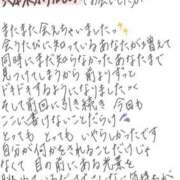 またまた会えちゃいました。
会うたびに知っているあなたが増えて
同時にまだ知らなかったあなたまで
見つけてしまうから 前よりずっと
ドキドキするようになりました。
そして前回に引き続き 今回も
ここに書けないことだらけ
とっても とっても いやらしかったです
自分が何かをされることだけじゃ
なくて 目の前にある光景を